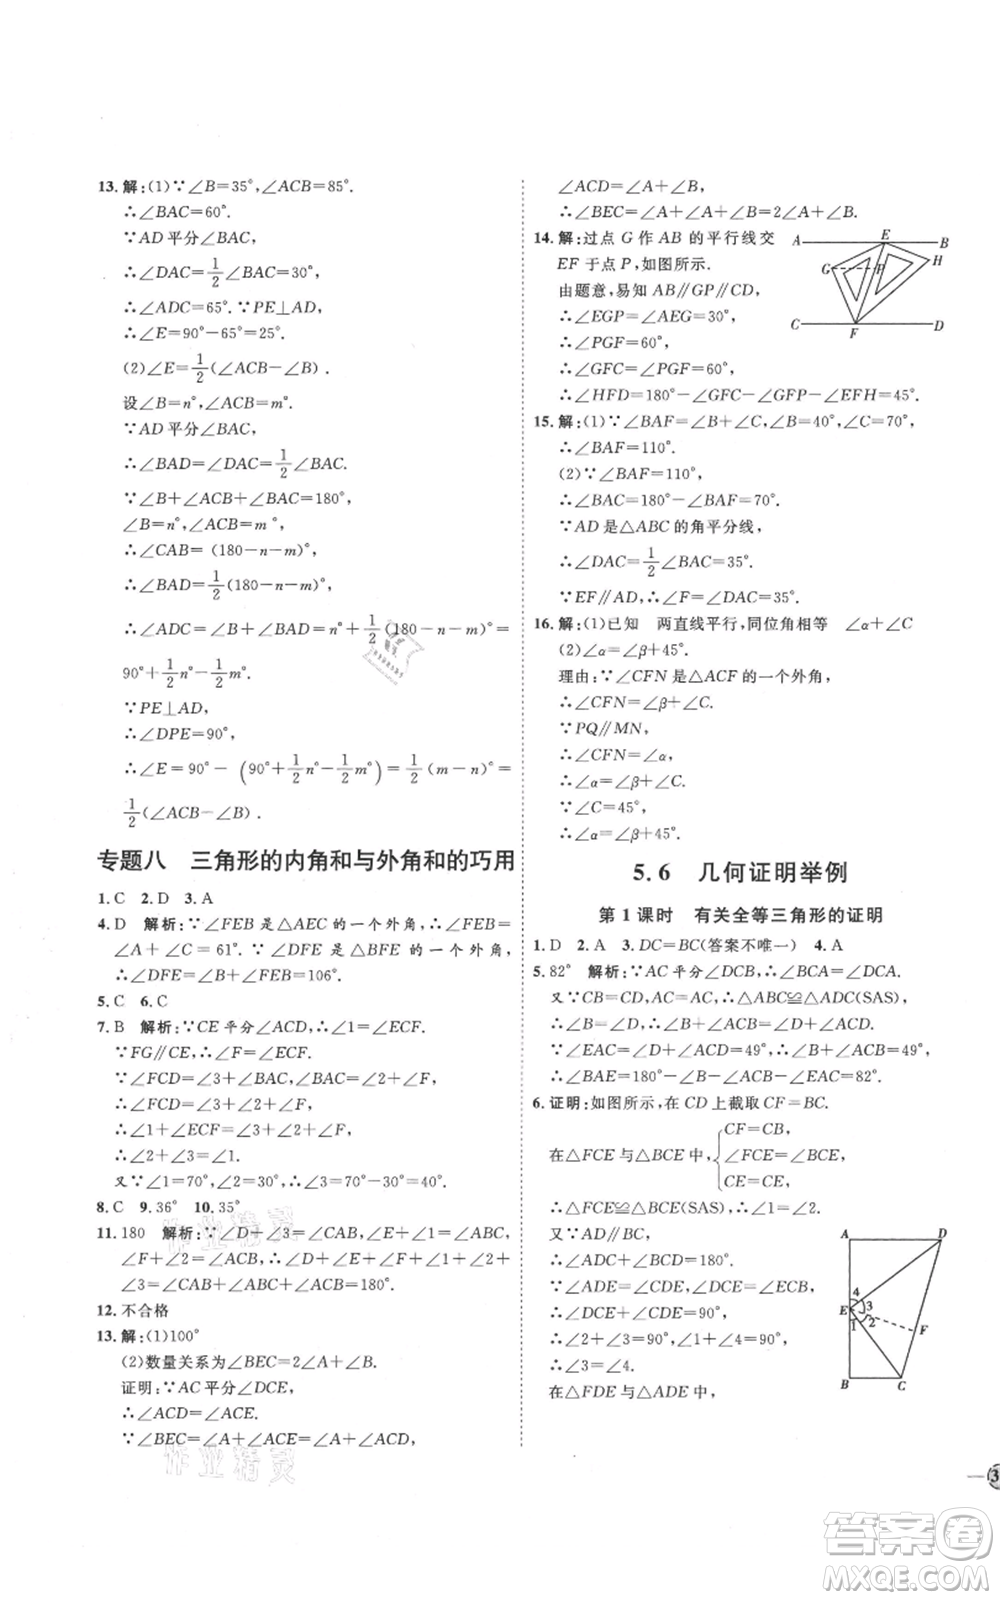 13. 解:(1)∵∠B=35°,∠ACB=85°.
∴∠BAC=60°.
∵AD平分∠BAC,
∴∠DAC=1/2∠BAC=30°,
∴∠ADC=65°.∵PE⊥AD,
∴∠E=90°-65°=25°.
(2)∠E=1/2(∠ACB-∠B).
设∠B=n°,∠ACB=m°.
∵AD平分∠BAC,
∴∠BAD=∠DAC=1/2∠BAC.
∵∠B+∠ACB+∠BAC=180°,
∠B=n°,∠ACB=m°,
∴∠CAB=(180-n-m)°,
∴∠BAD=1/2(180-n-m)°,
∴∠ADC=∠B+∠BAD=n°+1/2(180-n-m)°=
90°+1/2n°-1/2m°.
∵PE⊥AD,
∴∠DPE=90°,
∴∠E=90°-(90°+1/2n°-1/2m°)=1/2(m-n)°=
1/2(∠ACB-∠B).
专题八 三角形的内角和与外角和的巧用
1. C 2. D 3. A
4. D 解析:∵∠FEB是△AEC的一个外角,
∴∠FEB=∠A+∠C=70°.
又∵∠DFE是△BFE的一个外角,
∴∠DFE=∠B+∠FEB=106°.
5. C 6. C
7. B 解析:∵CE平分∠ACD,∴∠1=∠ECF.
∵FG∥CE,∴∠F=∠ECF=∠1.
∵∠FCD=∠3+∠BAC,∠BAC=∠2+∠F,
∴∠FCD=∠3+∠2+∠F,
∴∠1+∠ECF=∠3+∠2+∠F,
∴∠2+∠3=∠1.
又∵∠1=70°,∠2=30°,∴∠3=40°.
8. C 9. 36° 10. 35°
11. 180 解析:∵∠D+∠3=∠CAB,∠E+∠1=∠ABC,
∠F+∠2=∠ACB,∴∠D+∠E+∠F+∠1+∠2+
∠3=∠CAB+∠ABC+∠ACB=180°.
12. 不合格
13. 解:(1)100°
(2)数量关系为∠BEC=2∠A+∠B.
证明:∵AC平分∠DCE,
∴∠ACD=∠ACE.
∵∠BEC=∠A+∠ACE=∠A+∠ACD,
∠ACD=∠A+∠B,
∴∠BEC=∠A+∠A+∠B=2∠A+∠B.
14. 解:过点G作AB的平行线交
EF于点P,如图所示.
由题意,易知AB∥GP∥CD,
∴∠EGP=∠AEG=30°,
∴∠PGF=60°,
∴∠GFC=∠PGF=60°,
∴∠HFD=180°-∠GFC-∠GFP-∠EFH=45°.
A E B
G P H
C F D
15. 解:(1)∵∠BAF=∠B+∠C,∠B=40°,∠C=70°,
∴∠BAF=110°.
(2)∵∠BAF=110°,
∴∠BAC=180°-∠BAF=70°.
∵AD是△ABC的角平分线,
∴∠DAC=1/2∠BAC=35°.
∵EF∥AD,∴∠F=∠DAC=35°.
16. 解:(1)已知 两直线平行,同位角相等 ∠α+∠C
(2)∠α=∠β+∠C.
理由:∵∠CFN是△ACF的一个外角,
∴∠CFN=∠β+∠C.
∵PQ∥MN,
∴∠CFN=∠α,
∴∠α=∠β+∠C.
∵∠C=45°,
∴∠α=∠β+45°.
5.6 几何证明举例
第1课时 有关全等三角形的证明
1. D 2. A 3. DC=BC(答案不唯一) 4. A
5. 82° 解析:∵AC平分∠DCB,∴∠BCA=∠DCA.
又∵CB=CD,AC=AC,∴△ABC≌△ADC(SAS),
∴∠B=∠D,∴∠B+∠ACB=∠D+∠ACD.
∵∠EAC=∠D+∠ACD=49°,∴∠B+∠ACB=49°,
∴∠BAE=180°-∠B-∠ACB-∠EAC=82°.
6. 证明:如图所示,在CD上截取CF=BC.
在△FCE与△BCE中,{CF=CB,
∠FCE=∠BCE,
CE=CE,
∴△FCE≌△BCE(SAS),∴∠2=∠1.
又∵AD∥BC,
∴∠ADC+∠BCD=180°.
∵∠ADE=∠CDE,∠DCE=∠BCE,
∴∠DCE+∠CDE=90°,
∴∠2+∠3=90°,∠1+∠4=90°,
∴∠3=∠4.
在△FDE与△ADE中,
A D
4
E 3
1 2
F
B C
作业精灵
作业精灵
答案卷
MXQE.COM